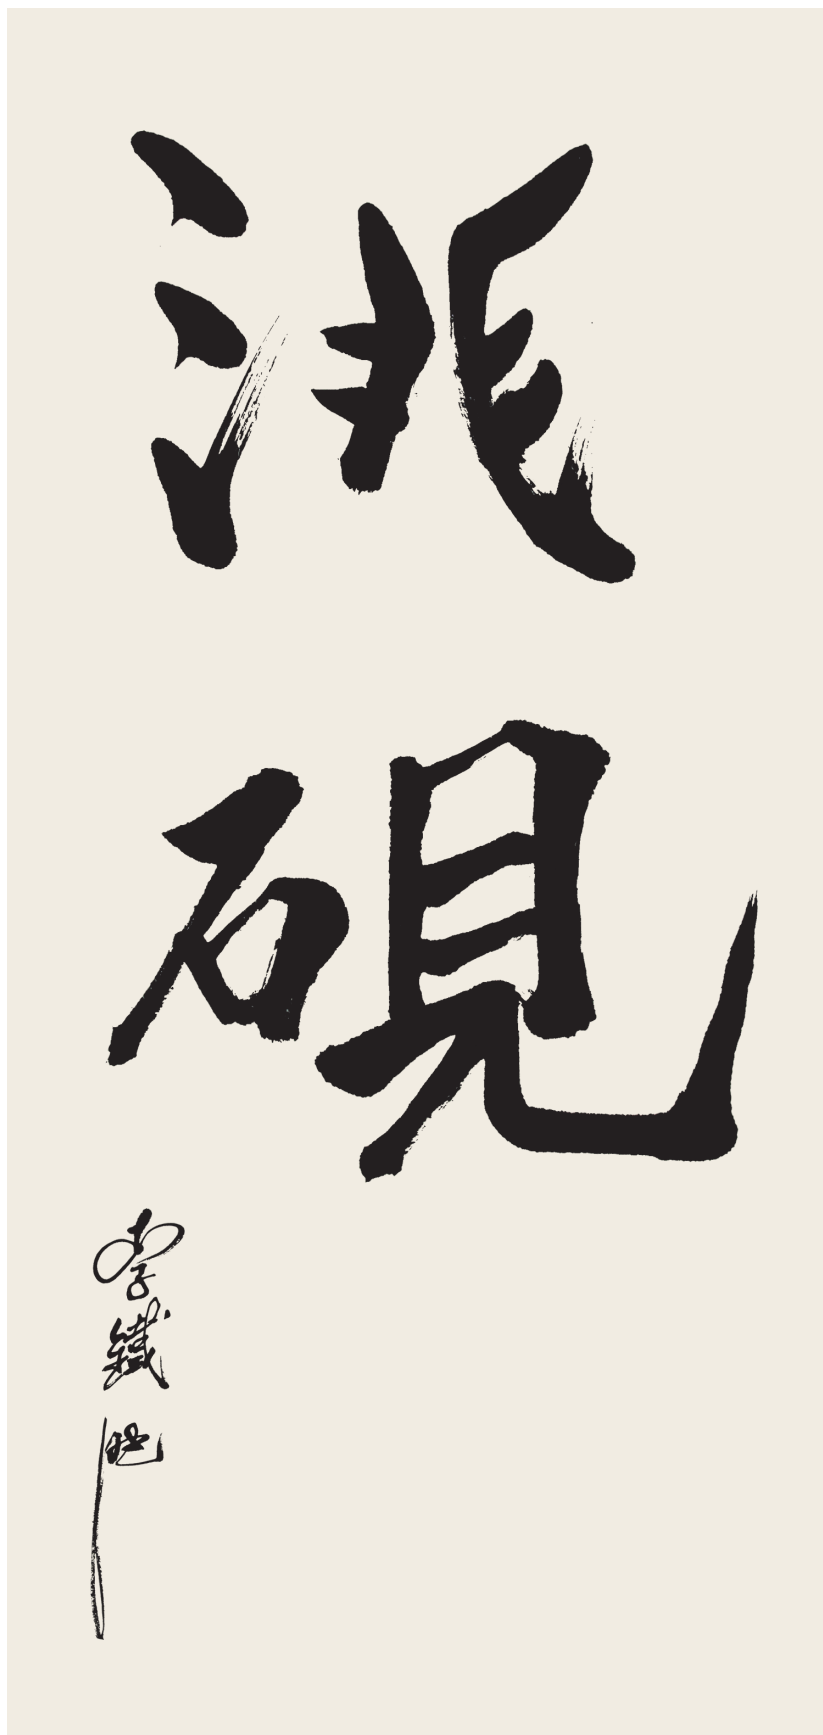 洮硯
李鐵